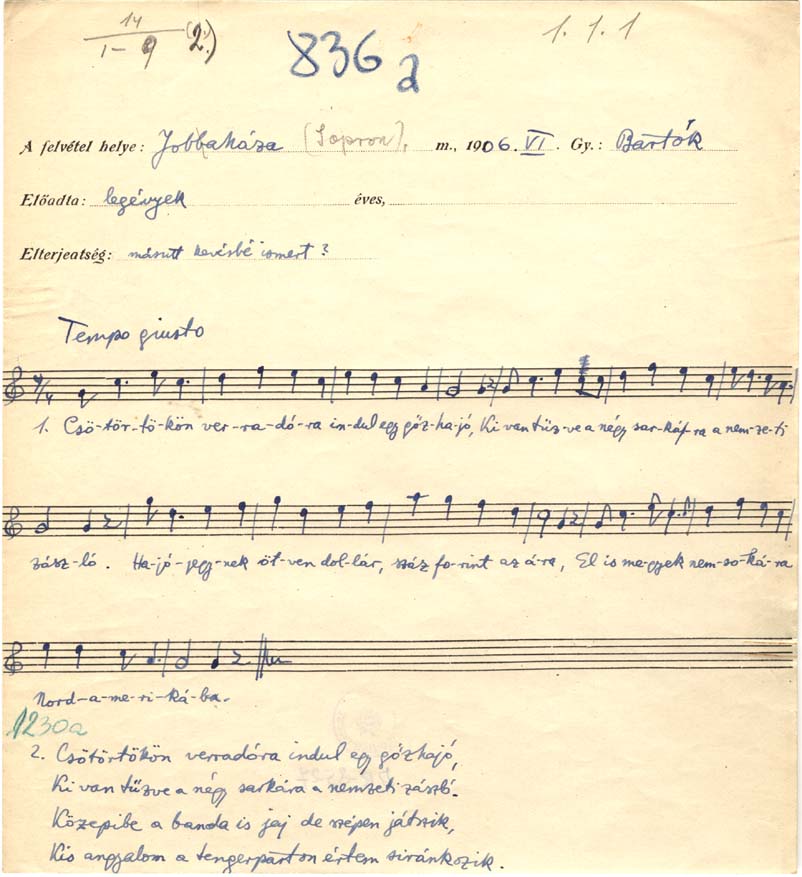 14
1-9 (2.)
836 a
1. 1. 1
A felvétel helye: Jobbaháza (Sopron), m., 1906. VI. Gy.: Bartók
Előadta: legények éves,
Elterjeatség: másutt kevésbé ismert?
Tempo giusto
1. Csö-tör-tö-kön ver-ra-dó-ra in-dul egy gőz-ha-jó, Ki van tűz-ve a négy sar-ká-ra a nem-ze-ti
zász-ló. Ha-jó-jegy-nek öt-ven dol-lár, száz fo-rint az á-ra, El is me-gyek nem-so-ká-ra
Nord-a-me-ri-ká-ba.
1230a
2. Csötörtökön verradóra indul egy gőzhajó,
Ki van tűzve a négy sarkára a nemzeti zászló.
Közepibe a banda is jaj de szépen játszik,
Kis angyalom a tengerparton értem siránkozik.